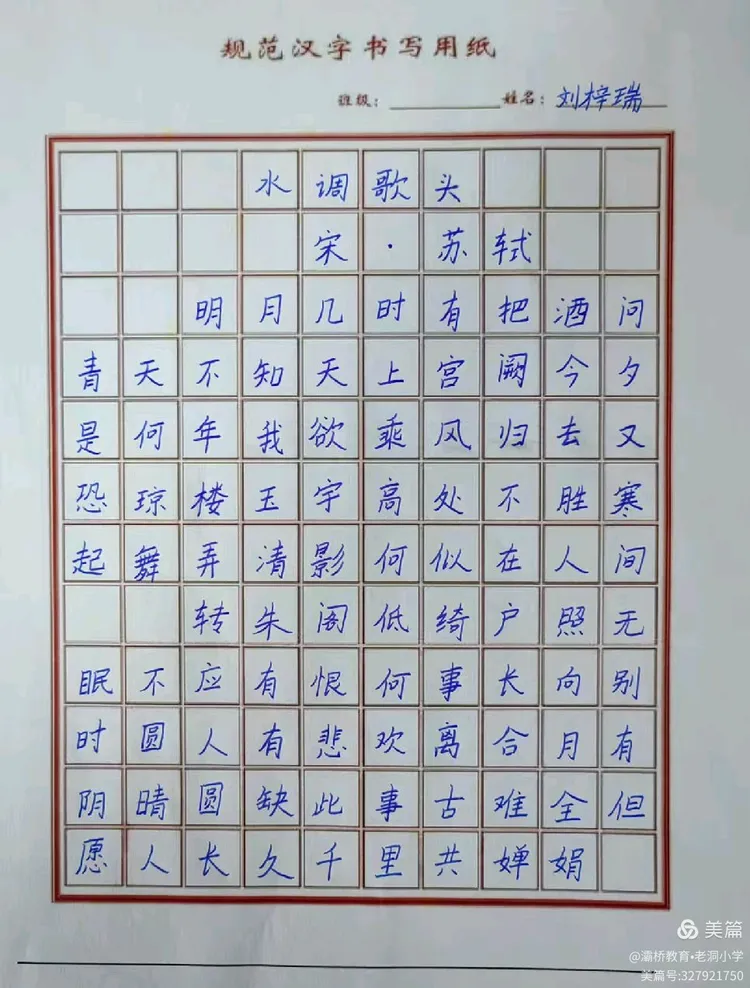 规范汉字书写用纸
班级：　姓名：刘梓瑞
水调歌头
宋·苏轼
明月几时有把酒问
青天不知天上宫阙今夕
是何年我欲乘风归去又
恐琼楼玉宇高处不胜寒
起舞弄清影何似在人间
转朱阁低绮户照无
眠不应有恨何事长向别
时圆人有悲欢离合月有
阴晴圆缺此事古难全但
愿人长久千里共婵娟
美篇
@灞桥教育•老洞小学
美篇号:327921750